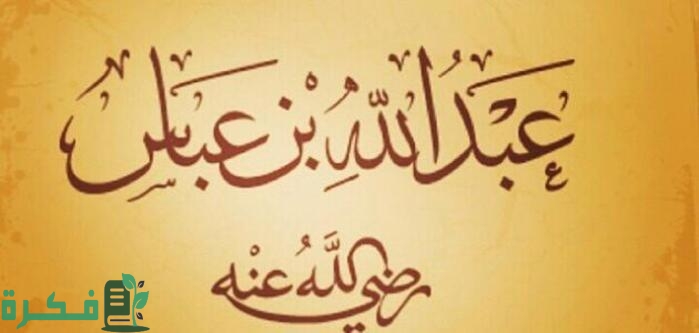 عَبْدُ اللّٰهِ بْن عَبَّاس
رضي اللَّهُ عنْه
فكرة